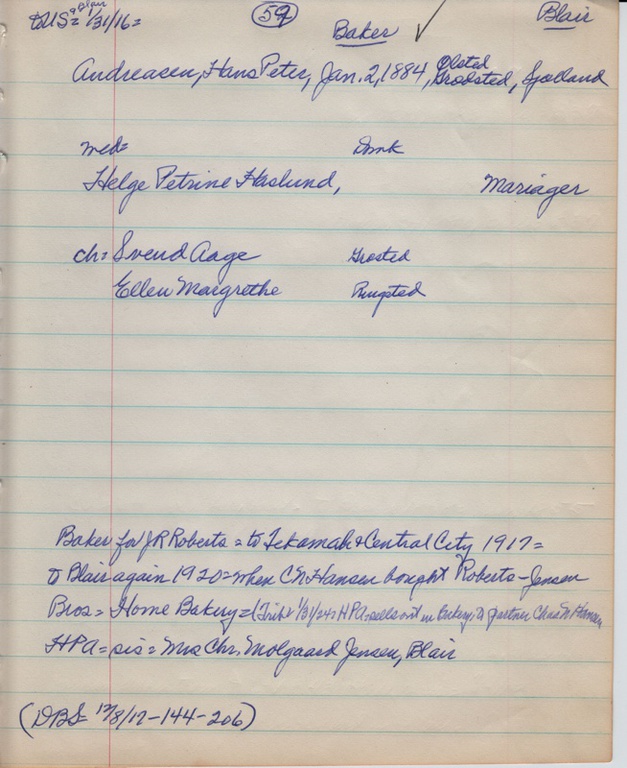 to US= & Blair 1/31/16=
59
Baker ✓
Blair
Andreasen, Hans Peter, Jan. 2, 1884, Olsted Grodsted, Sjolland
med= Dmk
Helge Petrine Haslund, Mariager
ch= Svend Aage Grosted
Ellen Margrethe Ringsted
Baker for J R Roberts = to Tekamah & Central City 1917=
to Blair again 1920= when C N Hansen bought Roberts-Jensen
Bros= Home Bakery= (Trib= 1/31/24= HPA= sells out in Bakery to partner Chas N Hansen
HPA= sis= Mrs Chr. Molgaard Jensen, Blair
(DBS= 12/8/17-144-206)